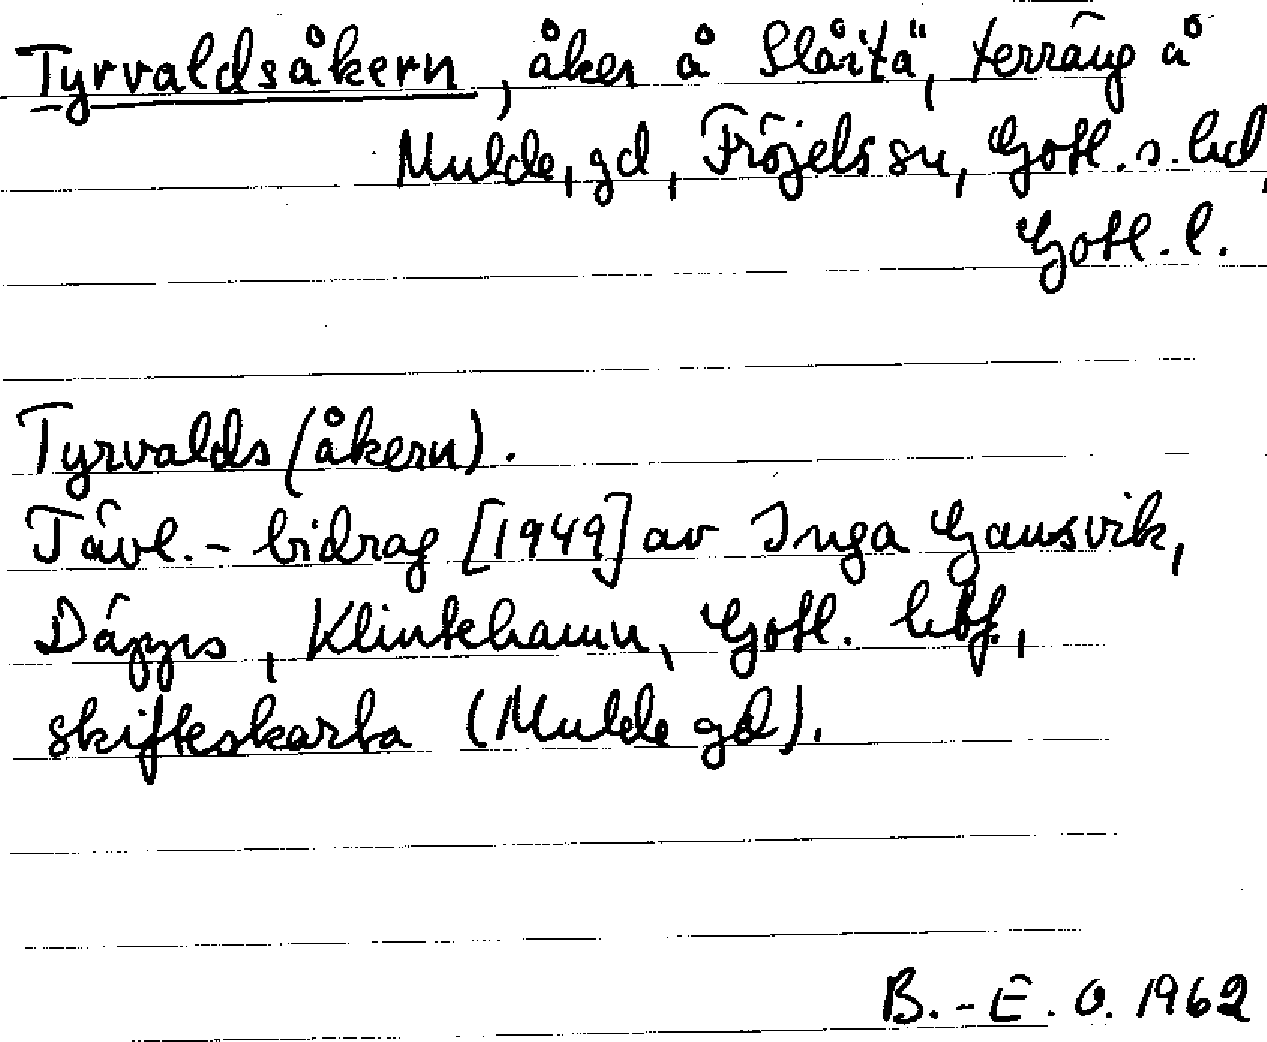 Tyrvaldsåkern, åker å Slåitä, terräng å
Mulde, gd, Fröjels sn, Gotl. s. hd,
Gotl. l.
Tyrvalds (åkern).
Tävl.-bidrag [1949] av Inga Gansvik,
Däpps, Klintehamn, Gotl. hbf.,
skifteskarta (Mulde gd).
B.-E. O. 1962